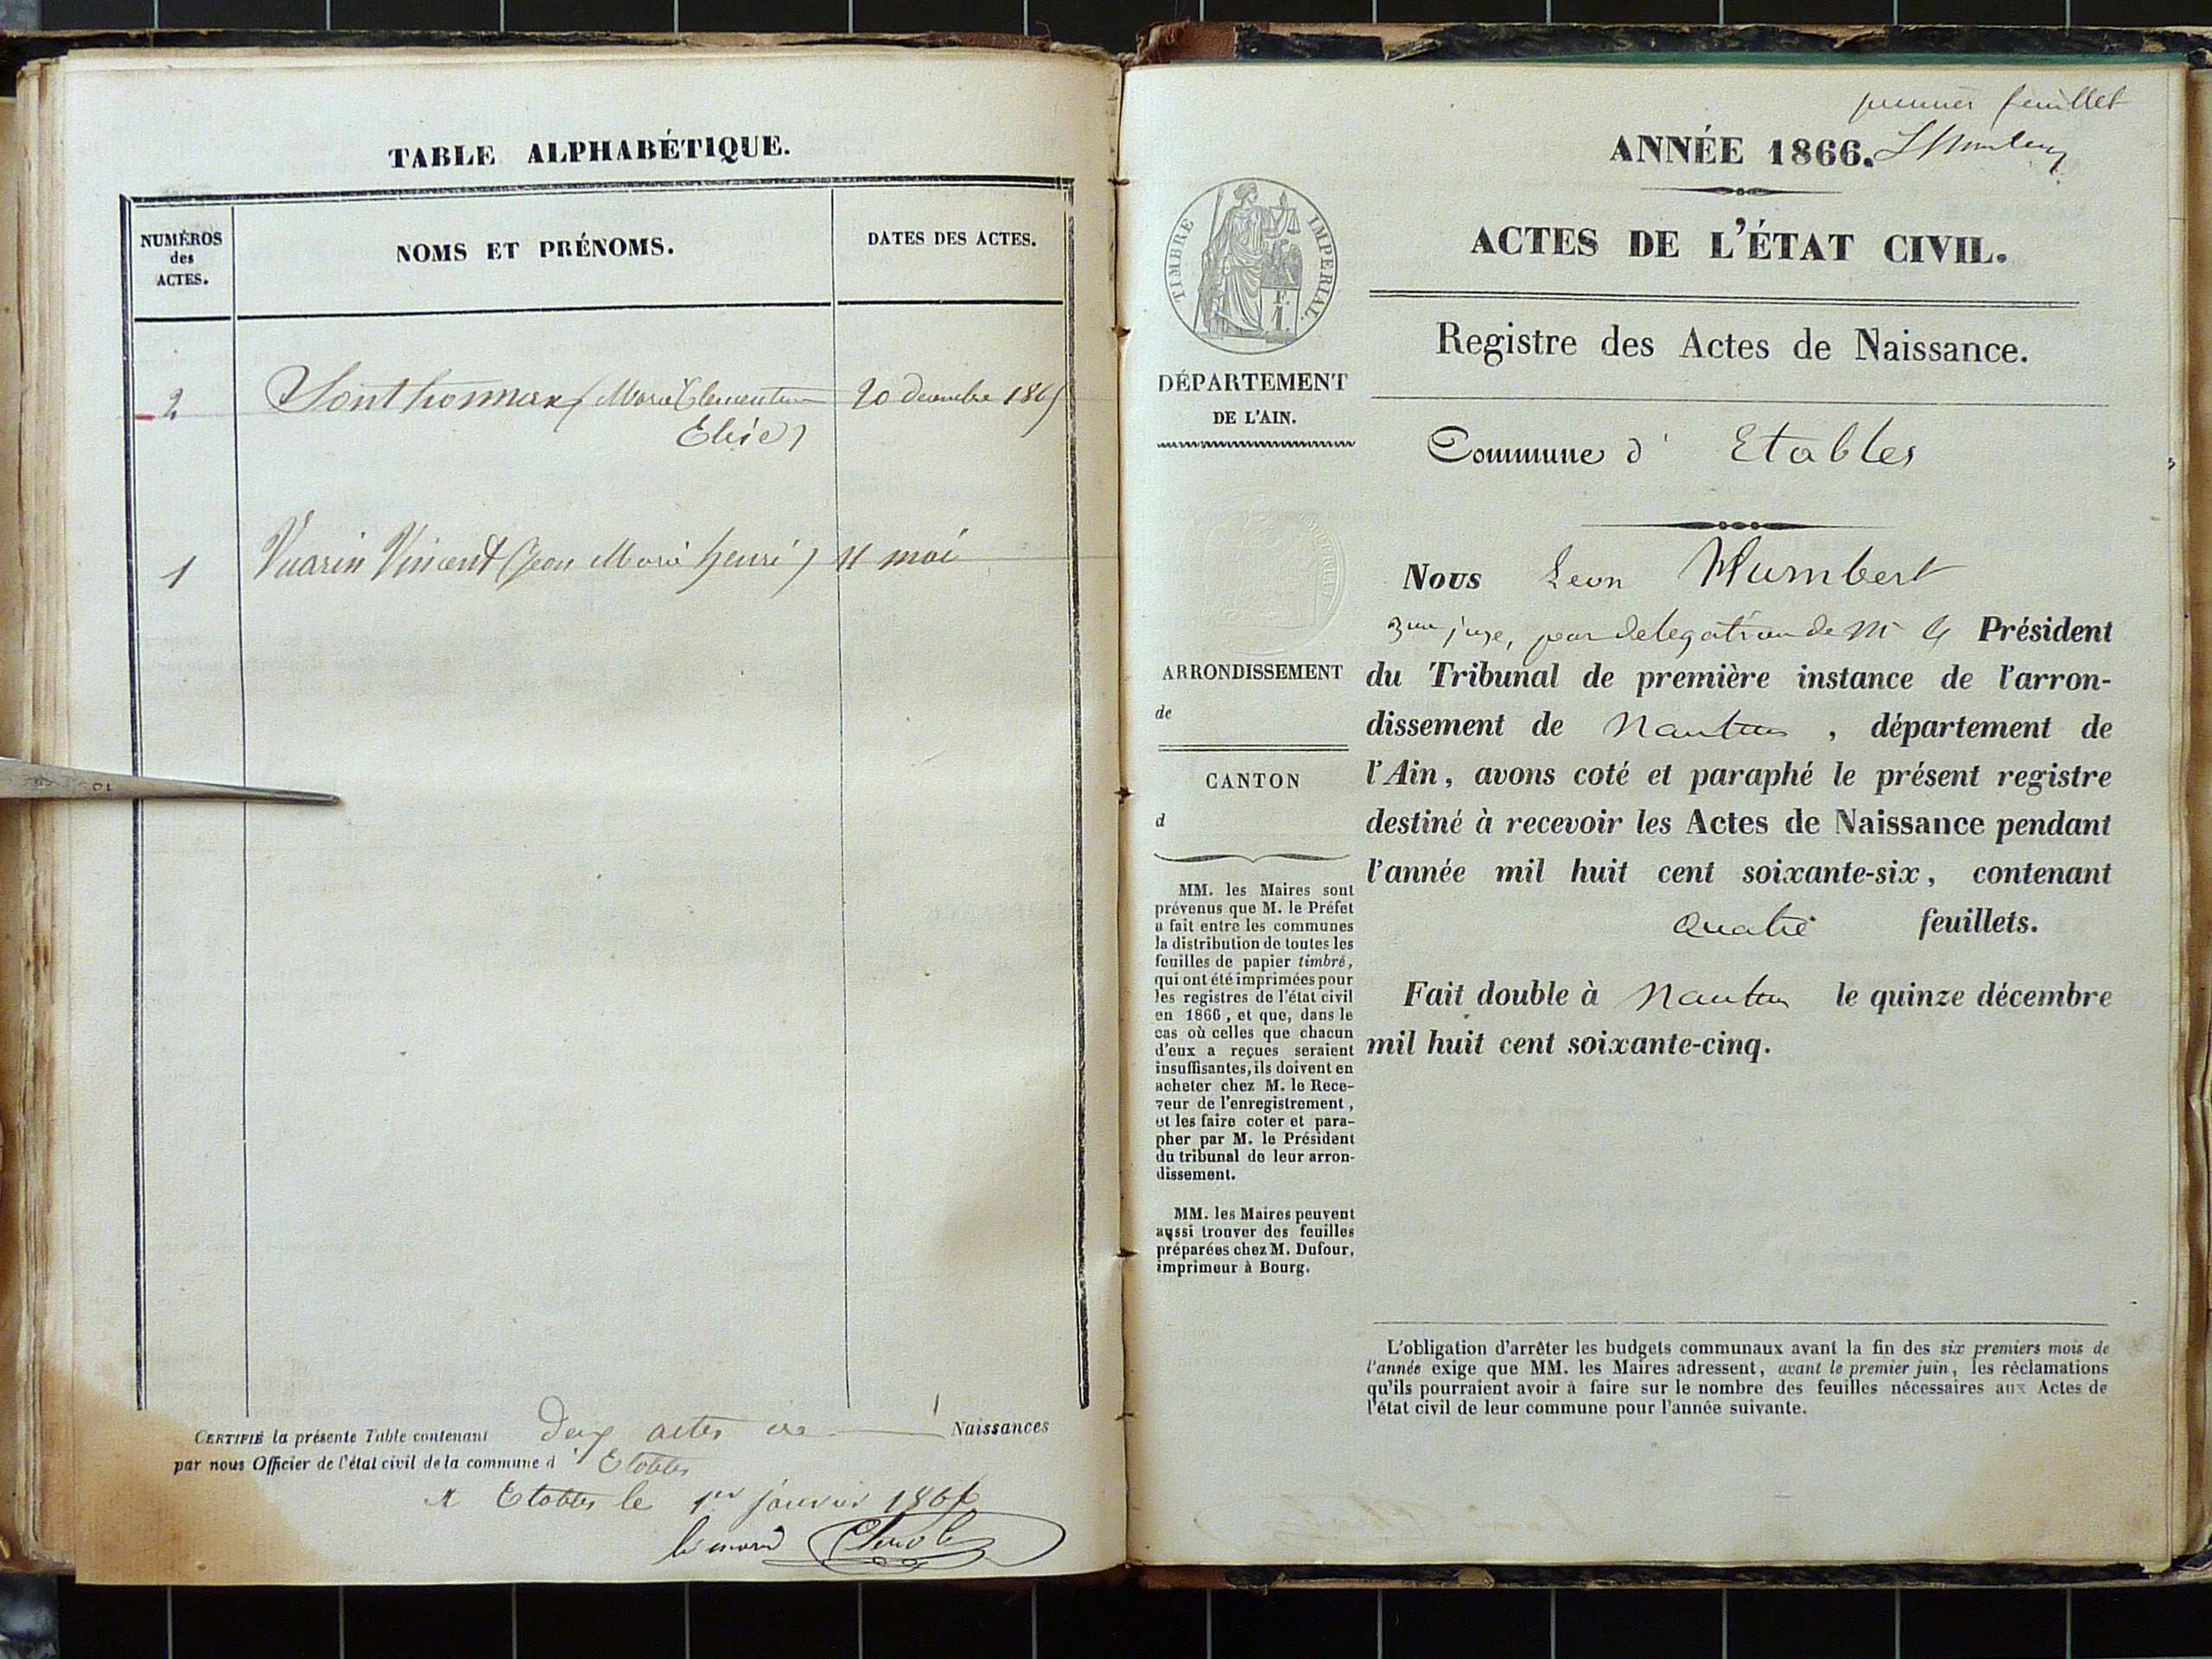 TABLE ALPHABÉTIQUE.
NUMÉROS
des
ACTES.
NOMS ET PRÉNOMS.
DATES DES ACTES.
2 Sonthonnax (Marie Clementine 20 decembre 1865
Elise)
1 Vuarin Vincent (Jean Marie henri) 11 mai
CERTIFIÉ la présente Table contenant Deux actes de Naissances
par nous Officier de l'état civil de la commune d' Etables
A Etables le 1er janvier 1866
le maire
premier feuillet
ANNÉE 1866.
ACTES DE L'ÉTAT CIVIL.
Registre des Actes de Naissance.
Commune d' Etables
TIMBRE IMPÉRIAL.
1.
DÉPARTEMENT
DE L'AIN.
ARRONDISSEMENT
de
CANTON
d
MM. les Maires sont
prévenus que M. le Préfet
a fait entre les communes
la distribution de toutes les
feuilles de papier timbré,
qui ont été imprimées pour
les registres de l'état civil
en 1866, et que, dans le
cas où celles que chacun
d'eux a reçues seraient
insuffisantes, ils doivent en
acheter chez M. le Rece-
veur de l'enregistrement,
et les faire coter et para-
pher par M. le Président
du tribunal de leur arron-
dissement.
MM. les Maires peuvent
aussi trouver des feuilles
préparées chez M. Dufour,
imprimeur à Bourg.
Nous Leon Humbert
juge, par delegation de Mr le Président
du Tribunal de première instance de l'arron-
dissement de Nantua, département de
l'Ain, avons coté et paraphé le présent registre
destiné à recevoir les Actes de Naissance pendant
l'année mil huit cent soixante-six, contenant
quatre feuillets.
Fait double à Nantua le quinze décembre
mil huit cent soixante-cinq.
L'obligation d'arrêter les budgets communaux avant la fin des six premiers mois de
l'année exige que MM. les Maires adressent, avant le premier juin, les réclamations
qu'ils pourraient avoir à faire sur le nombre des feuilles nécessaires aux Actes de
l'état civil de leur commune pour l'année suivante.